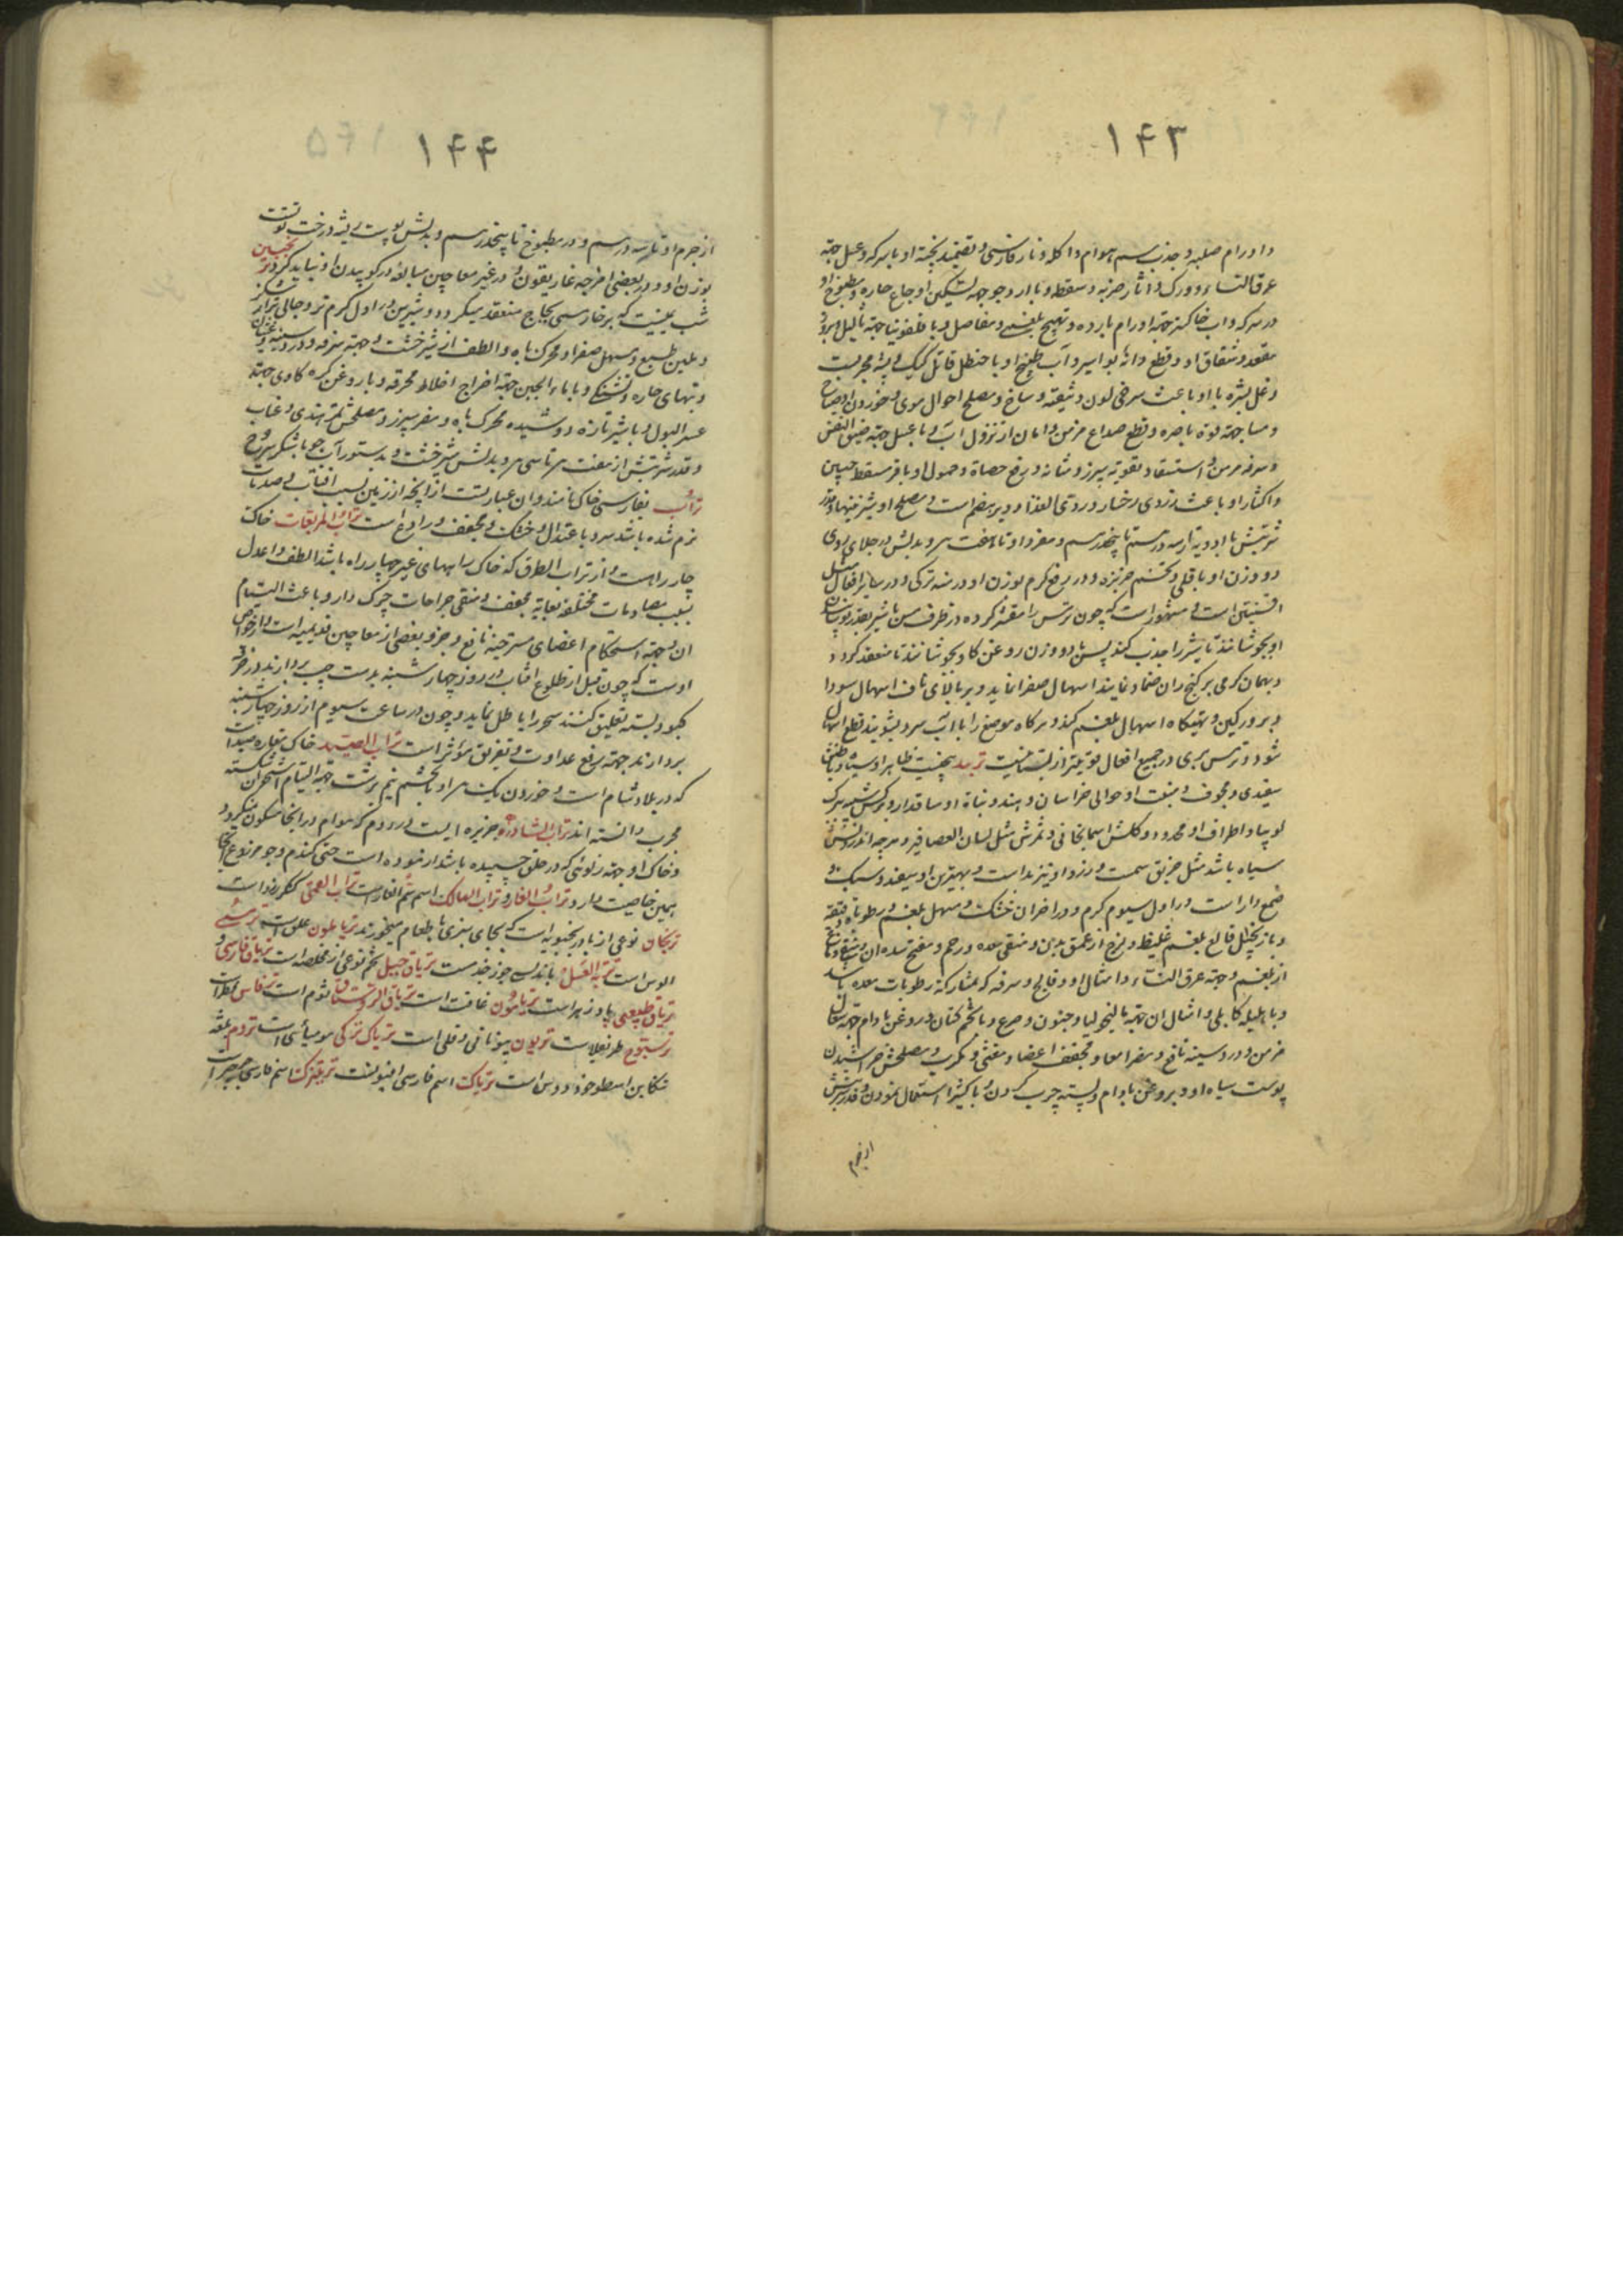 ۱۴۳
و اورام صلبه و جذب سم هوام و اکله و نار فارسی و تضمید پخته او با سرکه و عسل جهة
عرق النساء و ورک و اثار ضربه و سقطه و با ارد جو جهة تسکین اوجاع حاره و مطبوخ او
در سرکه و اب خاکستر جهة اورام بارده و تهیج بلغمی و مفاصل و با قلفونیا جهة ثالیل و بروز
مقعد و شقاق او و قطع دانه بواسیر و آب طبیخ او با حنظل قاتل کیک و پشه مجربست
و غسل بشره با او باعث سرخی لون و
و مسا جهة قوة باصره و قطع صداع مزمن و امان از نزول آب و با عسل جهة ضیق النفس
و سرفه مزمن و استسقا و تقویة سپرز و مثانه و رفع حصاة و حمول او با مر مسقط جنین
و اکثار او باعث زردی رخسار و ردی الغذا و دیر هضم است و مصلح او شیرینیها و قدر
شربتش با ادویه از سه درهم تا پنجدرهم و مفرد او تا هفت درهم و بدلش در جلای روی
دو وزن او باقلی و تخم خربزه و در رفع کرم بوزن او درمنه ترکی و در سایر افعال مثل
افسنتین است و مشهور است که چون ترمس را مقشر کرده در ظرف مس با شیر بقدر پوشیدن
او بجوشانند تا شیر را جذب کند پس با دو وزن روغن کاو بجوشانند تا منعقد کردد
و بهمان کرمی بر کنج ران ضماد نمایند اسهال صفرا نماید و بر بالای ناف اسهال سودا
و بر ورکین و تهیکاه اسهال بلغم کند و هرکاه موضع را با آب سرد بشویند قطع اسهال
شود و ترمس بری در جمیع افعال قویتر از بستانیست تربد بیخیست ظاهر او سیاه و باطنش
سفیدی و مجوف و منبت او حوالی خراسان و هند و نباة او ساقدار و برکش شبیه ببرک
لوبیا و اطراف او محدود و کلش اسمانجانی و ثمرش مثل لسان العصافیر و هرچه اندرونش
سیاه باشد مثل خربق سمست و زرد او نیز بد است و بهترین او سفید و سبک و
صمغ دار است در اول سیوم کرم و در اخر ان خشک و مسهل بلغم و رطوبات رقیقه
و با زنجبیل قالع بلغم غلیظ و لزج از عمق بدن و منقی معده و رحم و مفتح سده ان و
از بلغم و جهة عرق النساء و امثال او و فالج و سرفه که بمشارکة رطوبات معده باشد
و با هلیله کابلی و امثال ان جهة مالیخولیا و جنون و صرع و با تخم کتان و روغن بادام جهة سعال
مزمن و درد سینه نافع و مضر امعا و مجفف اعضا و مغثی و مکرب و مصلحش خراشیدن
پوست سیاه او و بروغن بادام و پسته چرب کردن و با کتیرا استعمال نمودن و قدر شربتش
از جرم
۱۴۴
از جرم او تا سه درهم و در مطبوخ تا پنجدرهم و بدلش پوست ریشه درخت توتست
بوزن او و در بعضی امزجه غاریقون و در غیر معاجین مبالغه در کوبیدن او نباید کرد ترنجبین
شب نمیست که بر خار مسمی بحاج منعقد میکردد و شیرین در اول کرم تر و جالی تر از شکر
و ملین طبع و مسهل صفرا و محرک باه و الطف از شیرخشت و جهة سرفه و درد سینه و غثیان
و تبهای حاره و تشنکی و با ماء الجبن جهة اخراج اخلاط محرقه و با روغن کره کاوی جهة
عسر البول و با شیر تازه دوشیده محرک باه و مضر سپرز و مصلحش تمر هندی و عناب
و قدر شربتش از هفت درهم تا سی درهم و بدلش شیرخشت و بدستور آب جو با شکر سرخ
تراب بفارسی خاک نامند و ان عبارتست از انچه از زمین بسبب افتاب و صدمات
نرم شده باشد سرد باعتدال و خشک و مجفف و رادع است تراب المربعات خاک
چار راهست و از تراب الطرق که خاک راههای غیر چهار راه باشد الطف و اعدل
بسبب مصادمات مختلفه بغایة مجفف و منقی جراحات چرک دار و باعث التیام
ان و جهة استحکام اعضای مسترخیه نافع و جزو بعضی از معاجین قدیمه است و از خواص
اوست که چون قبل از طلوع افتاب در روز چهارشنبه بدست چپ بردارند و در خرقه
کبود بسته تعلیق کنند سحر را باطل نماید و چون در ساعت سیوم از روز چهارشنبه
بردارند جهة رفع عداوت و تفریق مؤثر است تراب الصید خاک مغاره صیداست
که در بلاد شام است و خوردن یک درهم او با تخم نیم برشت جهة التیام استخوان شکسته
مجرب دانسته اند تراب الشارده جزیره ایست در روم که هوام در انجا سکون نمیکردد
و خاک او جهة زلوئی که در حلق چسپیده باشد ازموده است حتی کندم و جو مزروع انجا
همین خاصیت دارد تراب الفار و تراب الهالک اسم سم الفار است تراب القی کنکرزد است
ترنجان نوعی از بادرنجبویه است که بجای سبزی با طعام میخورند
الوس است تربة العسل باندلس جوز جندمست تریاق جبیل تخم نوعی از مخلصه است تریاق فارسی و
تریاق طبیعی پادزهر است تریامون غافت است تریاق الروستائی ثوم است ترفاس کماة است
ترسبوع طرنغلا است تربیون بیونانی دفلی است تریاک ترکی مومیائی است
شکاعی اسطوخودوس است تریاک اسم فارسی افیونست